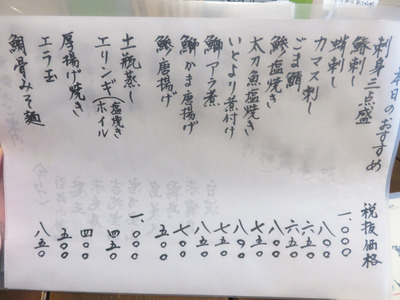 本日のおすすめ 税抜価格
刺身三点盛 一、〇〇〇
鯵刺し 八〇〇
蛸刺し 六五〇
カマス刺し 六五〇
ごま鯖 八〇〇
鯵塩焼き 七五〇
太刀魚塩焼き 八〇〇
いとより煮付け
鰤アラ煮
鰤かま唐揚げ 七〇〇
鯵唐揚げ 五〇〇
土瓶蒸し 一、〇〇〇
エリンギ(塩焼き ホイル) 四五〇
厚揚げ焼き 四〇〇
エラ玉 五〇〇
鯛骨みそ麺 八五〇